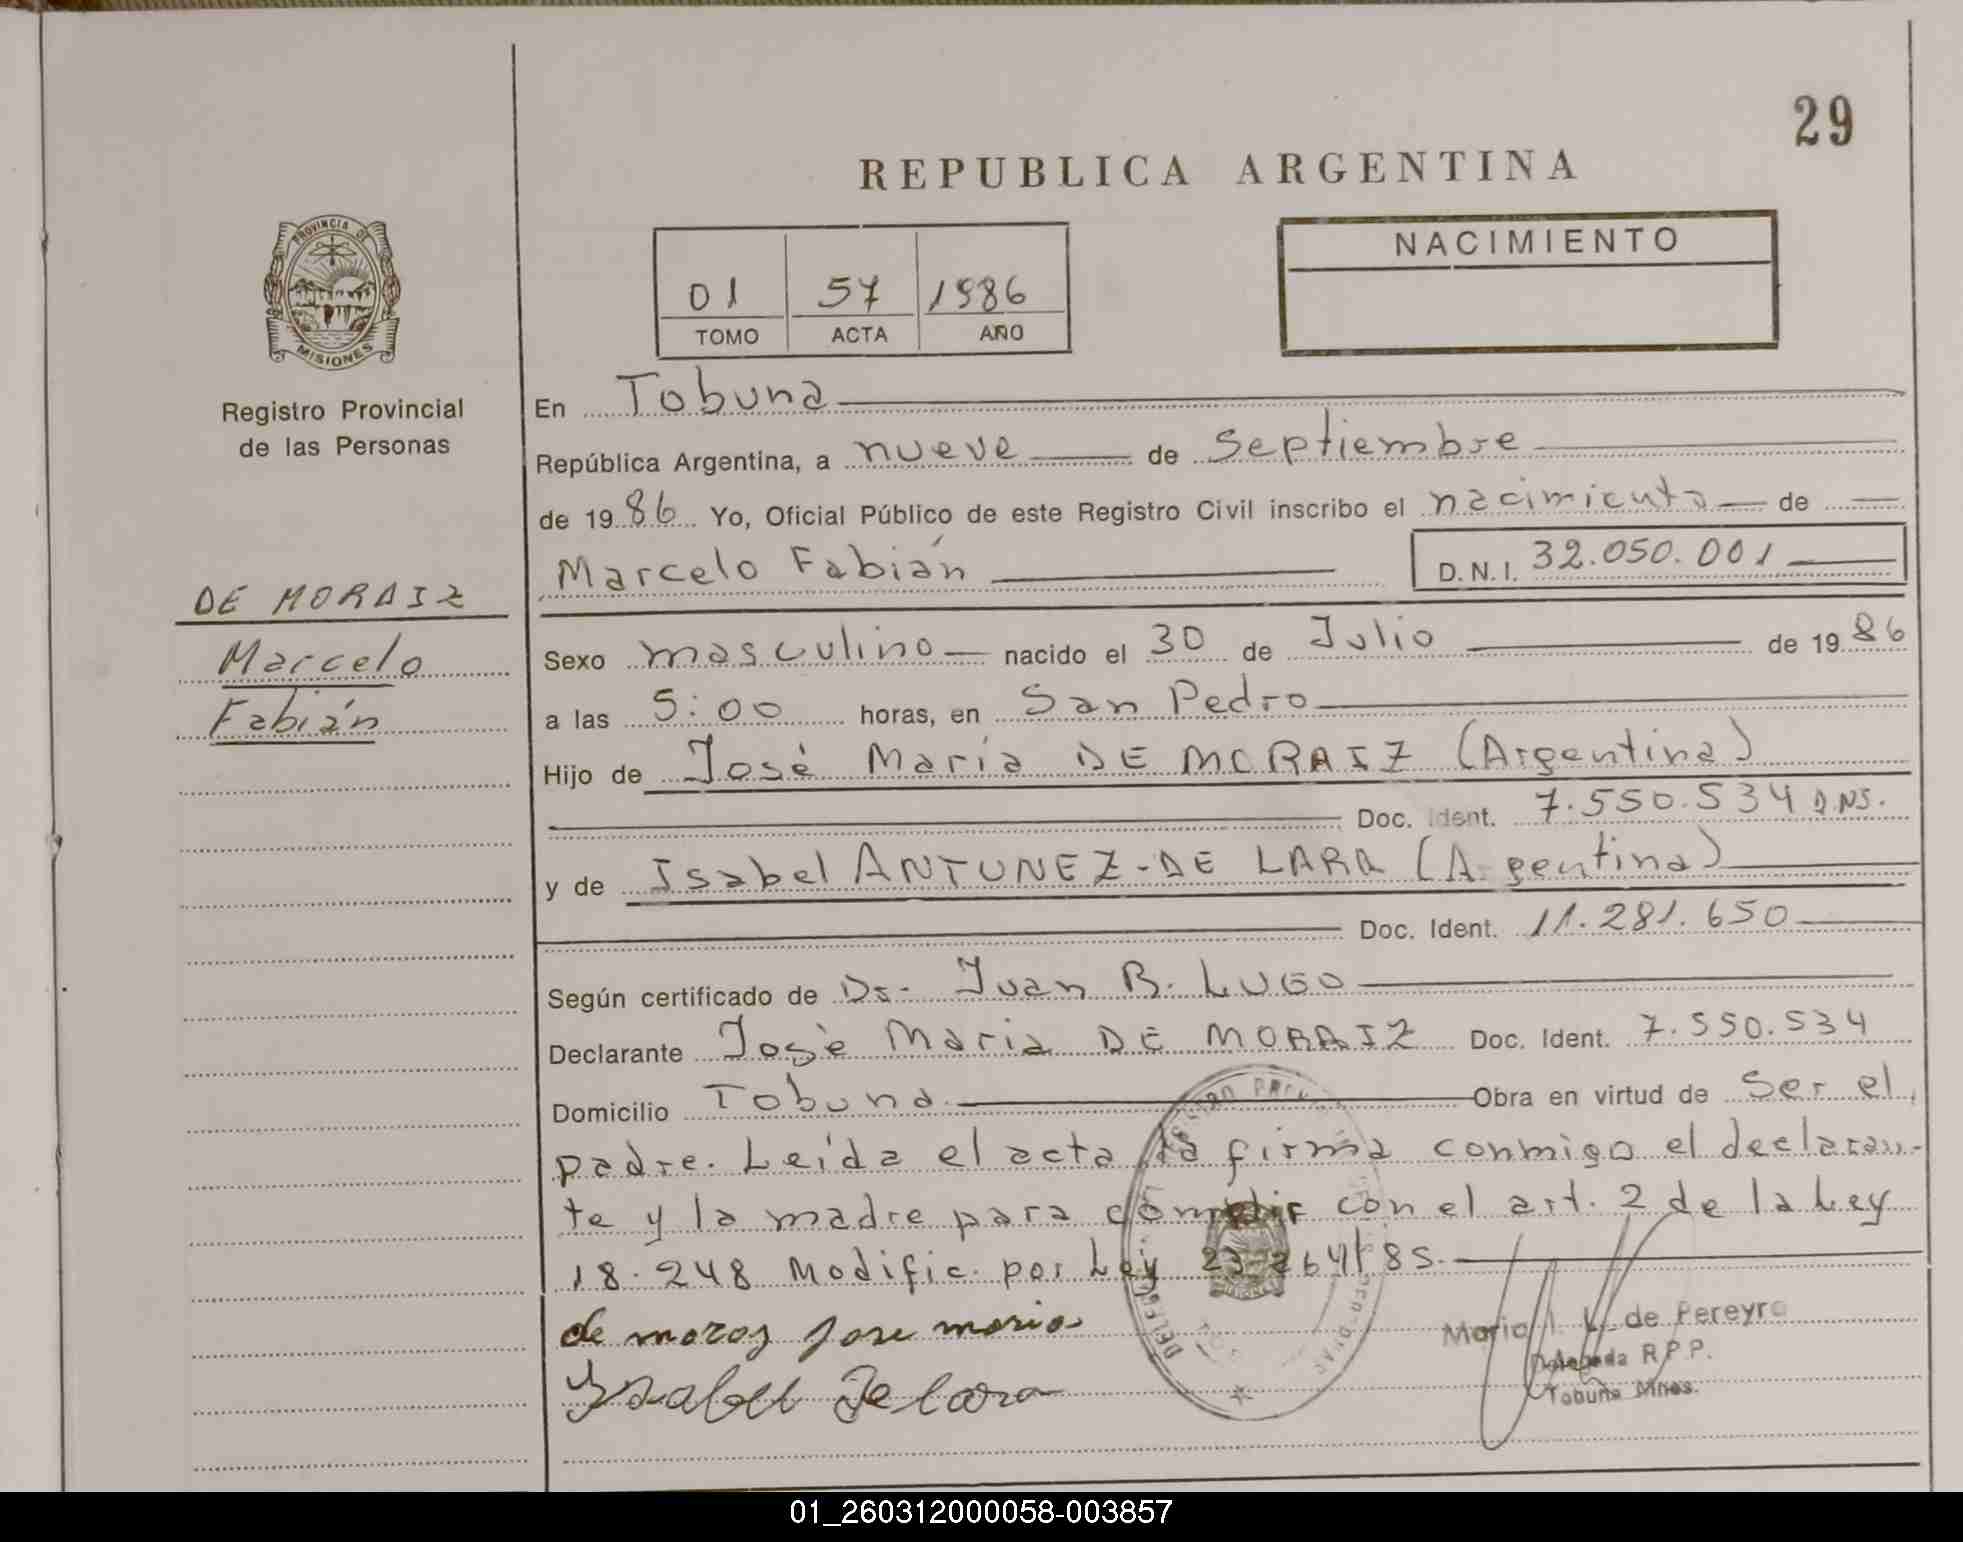 29
REPUBLICA ARGENTINA
PROVINCIA DE
MISIONES
Registro Provincial
de las Personas
01 57 1986
TOMO ACTA AÑO
NACIMIENTO
DE MORAIZ
Marcelo
Fabián
En Tobuna
República Argentina, a nueve de Septiembre
de 1986 Yo, Oficial Público de este Registro Civil inscribo el nacimiento de
Marcelo Fabián D.N.I. 32.050.001
Sexo masculino nacido el 30 de Julio de 1986
a las 5:00 horas, en San Pedro
Hijo de José María DE MORAIZ (Argentina)
Doc. Ident. 7.550.534
y de Isabel ANTUNEZ-DE LARA (Argentina)
Doc. Ident. 11.281.650
Según certificado de Dr. Juan B. LUGO
Declarante José María DE MORAIZ Doc. Ident. 7.550.534
Domicilio Tobuna Obra en virtud de Ser el
padre. Leída el acta la firma conmigo el declaran-
te y la madre para cumplir con el art. 2 de la Ley
18.248 Modific. por Ley 23.264/85.
de moraz jose maria
Ysabel De lara
de Pereyra
Delegada R.P.P.
Tobuna Mnes.
01_260312000058-003857